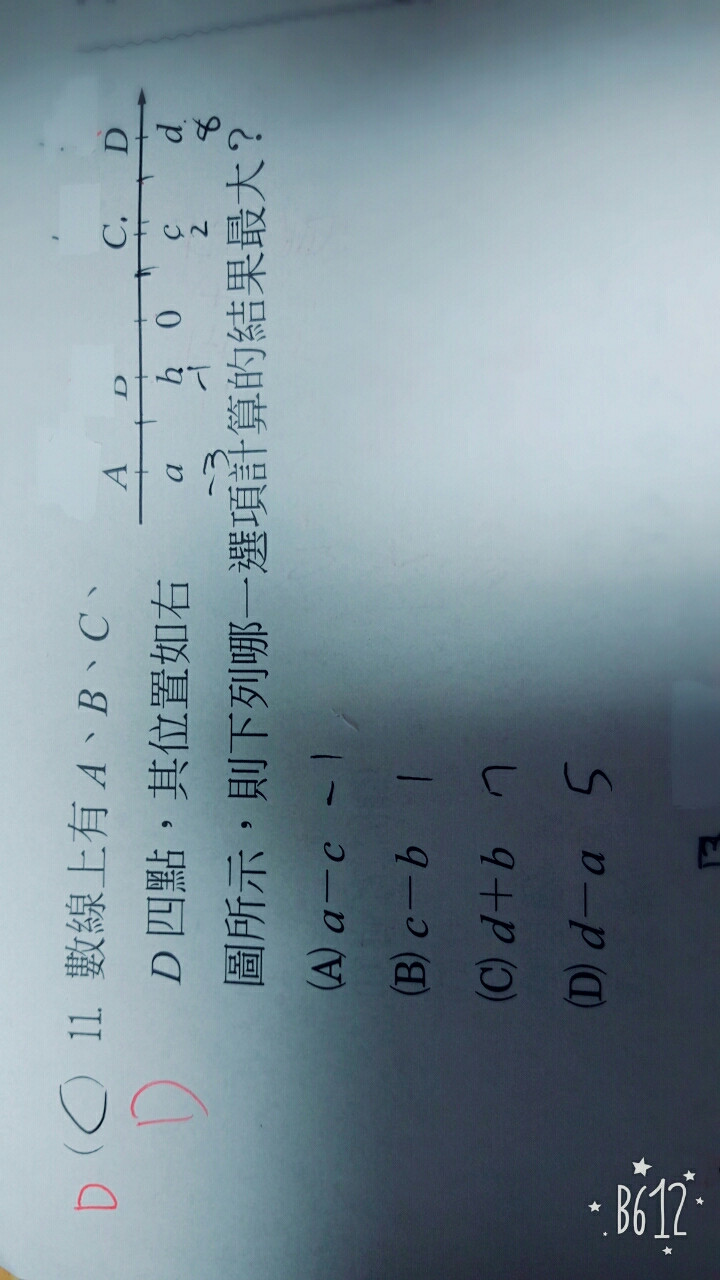 D (C) 11. 數線上有 A、B、C、
D
D 四點，其位置如右
圖所示，則下列哪一選項計算的結果最大？
A B C. D
a b 0 c d
-3 -1 2 8
(A) a－c -1
(B) c－b 1
(C) d＋b 7
(D) d－a 5
B612